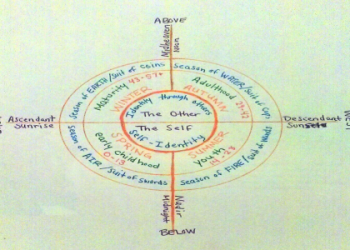 ABOVE
Midheaven
noon
Season of EARTH/Suit of Coins
Season of WATER/Suit of Cups
Maturity 43-57+
Adulthood 29-42
WINTER
AUTUMN
Identity through others
Ascendant
Sunrise
The Other
The Self
Descendant
Sunset
Self-Identity
SPRING
SUMMER
early childhood
0-13
Youth
14-28
Season of AIR/Suit of Swords
Season of FIRE/Suit of Wands
Nadir
Midnight
BELOW